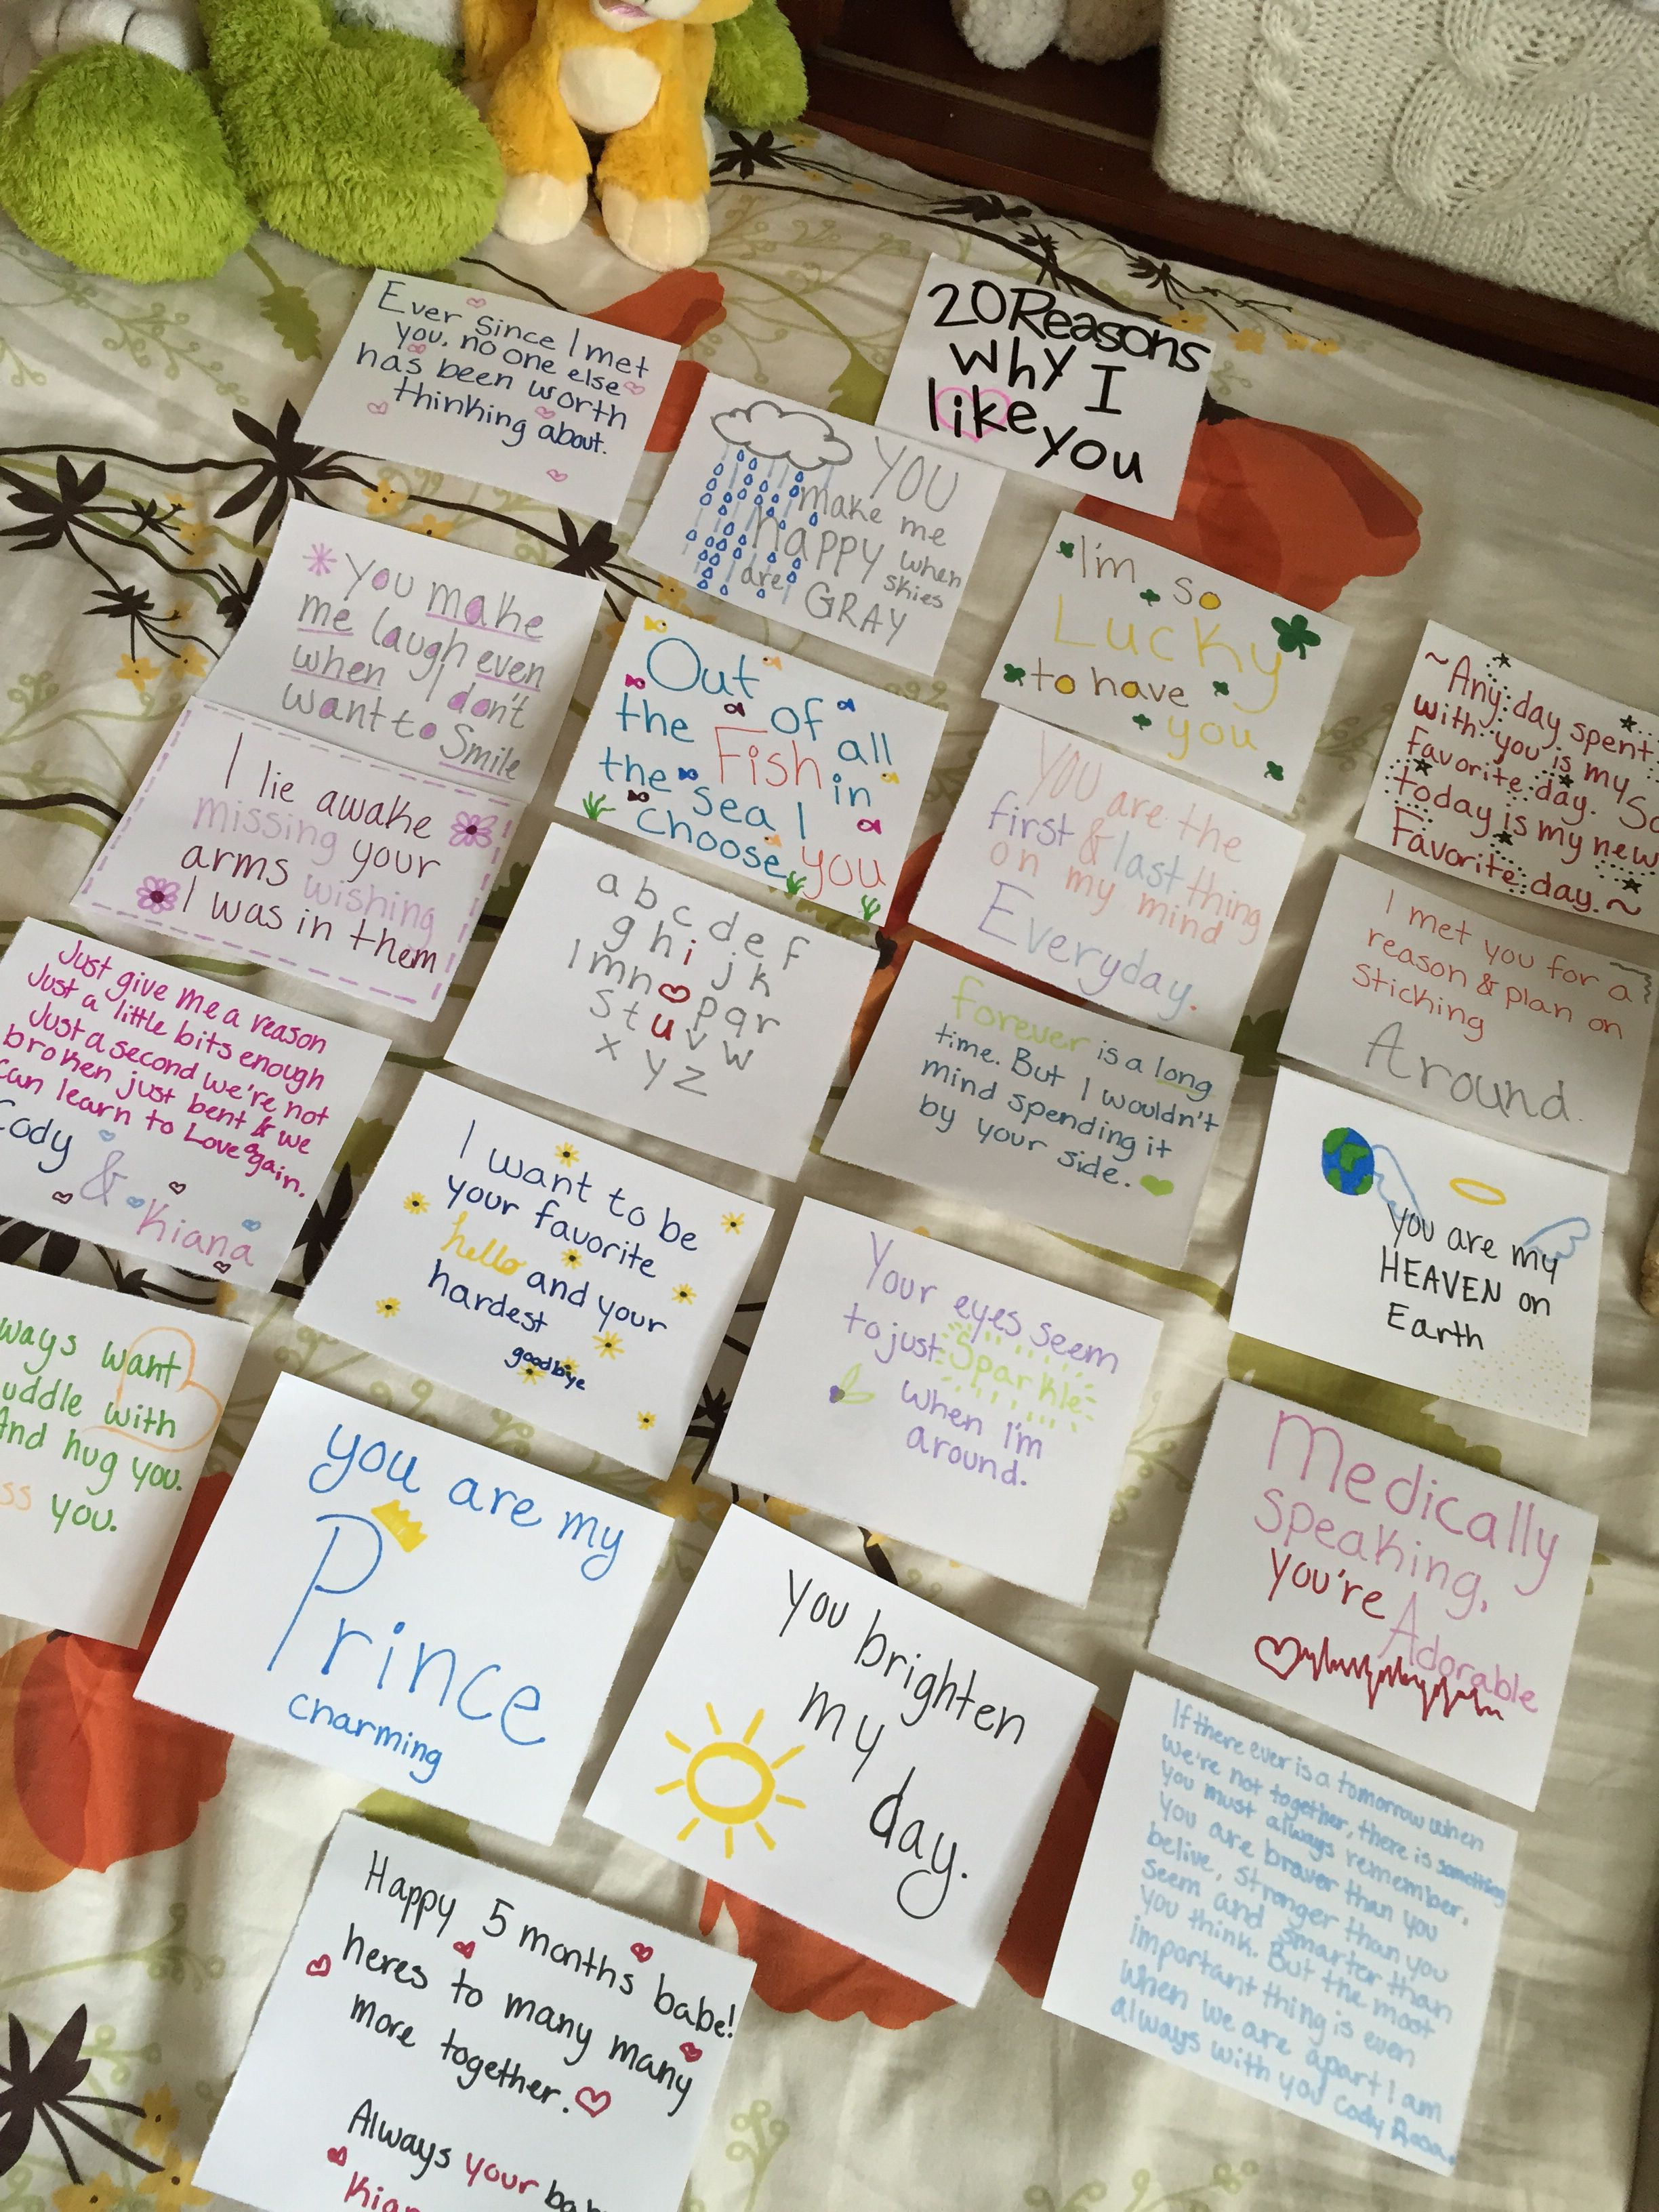 20 Reasons
why I
like you
Ever since I met
you, no one else
has been worth
thinking about.
YOU
make me
happy when
skies
are GRAY
I'm so
Lucky
to have
you
~Any day spent
with you is my
favorite day. So
today is my new
Favorite day.~
You make
me laugh even
when I don't
want to Smile
Out of all
the Fish in
the sea I
choose you
You are the
first & last thing
on my mind
Everyday.
I met you for a
reason & plan on
Sticking
Around.
I lie awake
missing your
arms wishing
I was in them
a b c d e f
g h i j k
l m n p q r
s t u v w
x y z
forever is a long
time. But I wouldn't
mind spending it
by your side.
you are my
HEAVEN on
Earth
Just give me a reason
Just a little bits enough
Just a second we're not
broken just bent & we
can learn to Love again.
Cody
&
Kiana
I want to be
your favorite
hello and your
hardest
goodbiye
Your eyes seem
to just Sparkle
when I'm
around.
Medically
Speaking,
You're Adorable
want
with
And hug you.
you.
you are my
Prince
charming
You brighten
my
day.
If there ever is a tomorrow when
we're not together, there is something
you must always remember,
You are braver than you
belive, stronger than you
seem and smarter than
you think. But the most
important thing is even
when we are apart I am
always with you Cody
Happy 5 months babe!
heres to many many
more together.
Always your